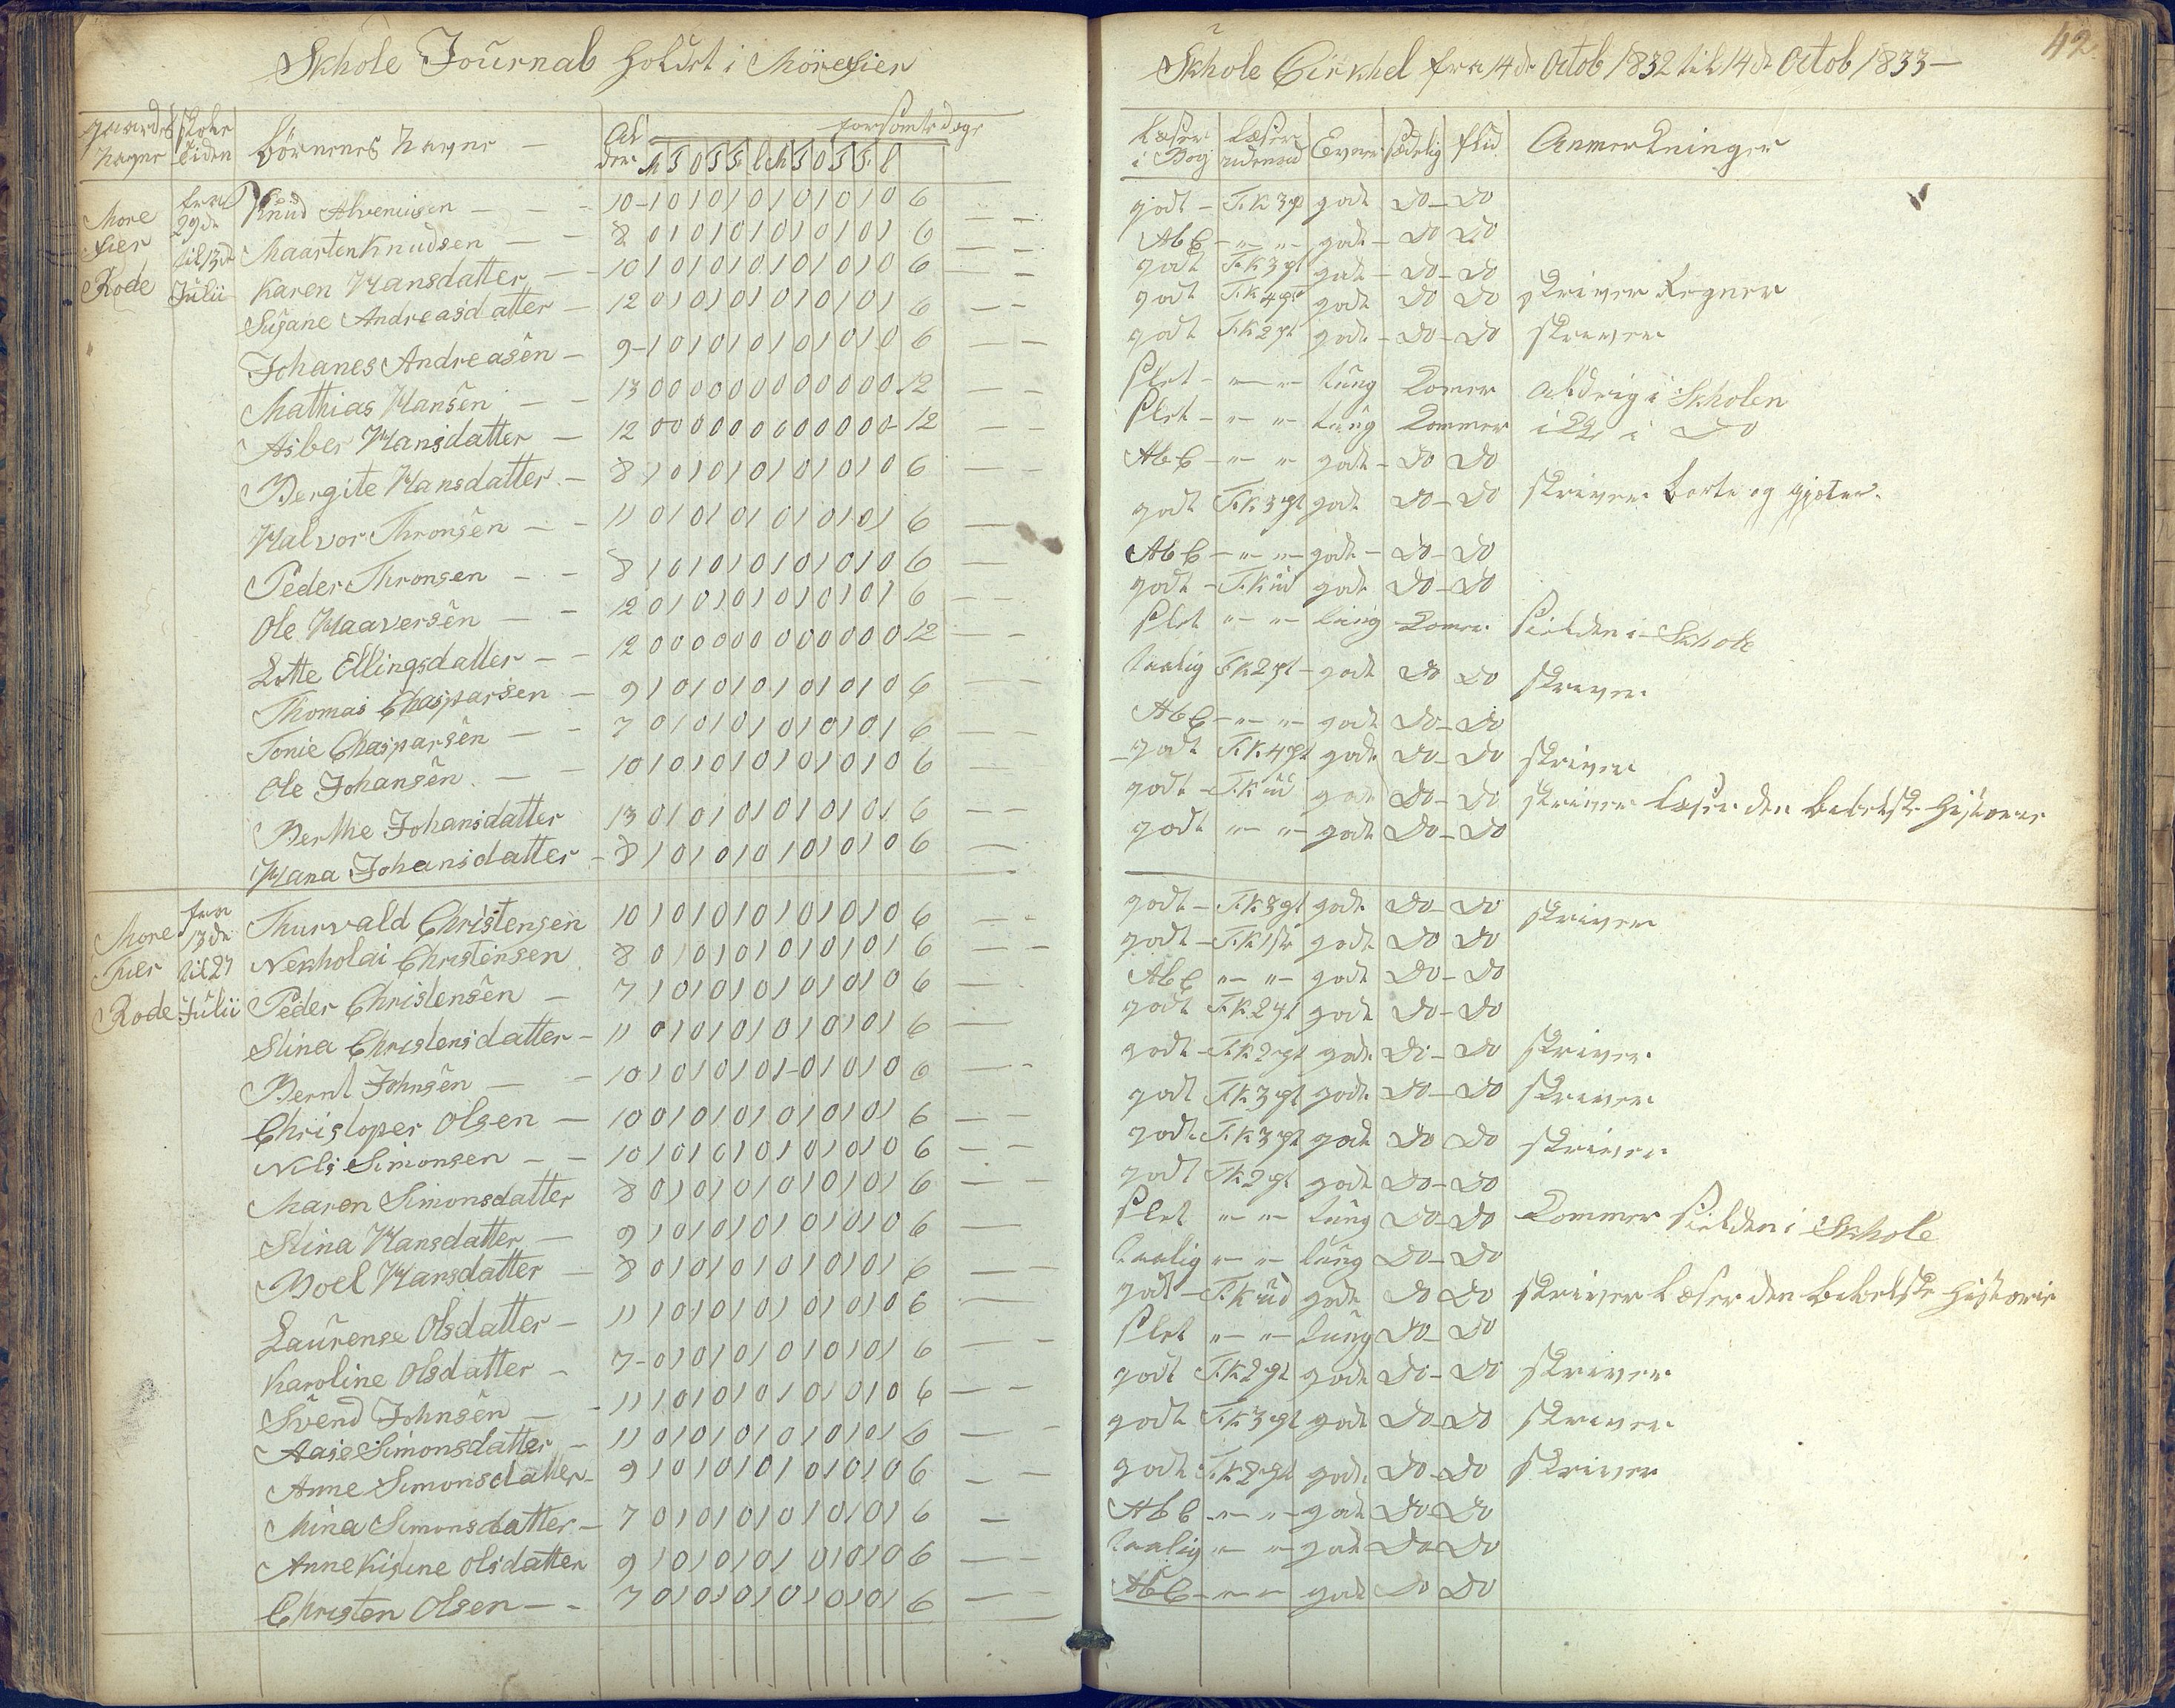 Skhole Journal holdet i Mörefier
Skhole Cirkhel fra 14de Octob 1832 til 14de Octob 1833 —
42
gaardes Nagne | skole tiden | börnenes Nagne — | Al der | forsömte dage M T O T F L M T O T F L
Læser i Bog | Læser udenad | Evner | sædelig | flid | Anmerkninger
More fier Rode | fra 29de til 13de Julii
Knud Alvenusen — 10 – 1 0 1 0 1 0 1 0 1 0 1 0 6 | godt – F.K 3 pt godt Do – Do
Maarten Knudsen — 8 0 1 0 1 0 1 0 1 0 1 0 1 6 | AbC – " – " – godt – Do Do
Karen Hansdatter — 10 1 0 1 0 1 0 1 0 1 0 1 0 6 | godt F.K 3 pt godt – Do – Do
Susane Andreasdatter — 12 0 1 0 1 0 1 0 1 0 1 0 1 6 | godt F.K 4 pt godt Do Do skriver Regner
Johanes Andreasen — 9 – 1 0 1 0 1 0 1 0 1 0 1 0 6 | godt F.K 2 pt godt – Do – Do skriver
Mathias Hansen — 13 0 0 0 0 0 0 0 0 0 0 0 0 12 | slet – " – " tung Komer aldrig i Skholen
Asber Hansdatter — 12 0 0 0 0 0 0 0 0 0 0 0 0 – 12 | slet – " – " tung Kommer i Do
Bergite Hansdatter — 8 1 0 1 0 1 0 1 0 1 0 1 0 6 | AbC – " – " godt – Do Do
Halvor Thronsen — 11 0 1 0 1 0 1 0 1 0 1 0 1 6 | godt F.K 3 pt godt Do – Do skriver borte og gjeter
Peder Thronsen — 8 1 0 1 0 1 0 1 0 1 0 1 0 6 | AbC – " – " – godt – Do – Do
Ole Haaversen — 12 0 1 0 1 0 1 0 1 0 1 0 1 6 | godt – F.K ud godt Do – Do
Lotte Ellingsdatter — 12 0 0 0 0 0 0 0 0 0 0 0 0 12 | slet " – " – tung Komer sielden i Skhole
Thomas Chasparsen — 9 1 0 1 0 1 0 1 0 1 0 1 0 6 | taalig F.K 2 pt – godt Do Do skriver
Tonie Chasparsen — 7 0 1 0 1 0 1 0 1 0 1 0 1 6 | AbC – " – " godt Do – Do
Ole Johansen — 10 1 0 1 0 1 0 1 0 1 0 1 0 6 | godt F.K 4 pt godt Do – Do skriver
Berthe Johansdatter 13 0 1 0 1 0 1 0 1 0 1 0 1 6 | godt – F.K ud godt Do – Do skriver Læser den bibelske historie
Hana Johansdatter – 8 1 0 1 0 1 0 1 0 1 0 1 0 6 | godt " – " – godt Do – Do
More Fier Rode | fra 13de til 27 Julii
Thurvald Christensen 10 1 0 1 0 1 0 1 0 1 0 1 0 6 | godt – F.K 3 pt godt Do – Do skriver
Nekholai Christensen 8 0 1 0 1 0 1 0 1 0 1 0 1 6 | godt – F.K 1ste godt Do Do
Peder Christensen — 7 1 0 1 0 1 0 1 0 1 0 1 0 6 | AbC " – " – godt Do – Do
Stina Christensdatter – 11 0 1 0 1 0 1 0 1 0 1 0 1 6 | godt F.K 2 pt godt Do – Do
Bernt Johnsen — 10 1 0 1 0 1 0 1 – 0 1 0 1 0 6 | godt – F.K 2 pt godt Do – Do skriver
Christoper Olsen — 10 0 1 0 1 0 1 0 1 0 1 0 1 6 | godt F.K 3 pt godt Do – Do skriver
Nils Simonsen — 10 1 0 1 0 1 0 1 0 1 0 1 0 6 | godt F.K 3 pt godt Do Do skriver
Maren Simonsdatter 8 0 1 0 1 0 1 0 1 0 1 0 1 6 | godt F.K 2 pt godt Do – Do
Stina Hansdatter — 9 1 0 1 0 1 0 1 0 1 0 1 0 6 | slet " – " – tung Do – Do Kommer sielden i Skhole
Boel Hansdatter — 8 0 1 0 1 0 1 0 1 0 1 0 1 6 | taalig " – " – tung Do – Do
Laurense Olsdatter – 11 1 0 1 0 1 0 1 0 1 0 1 0 6 | godt – F.K ud godt Do Do skriver Læser den bibelske historie
Karoline Olsdatter — 7 – 0 1 0 1 0 1 0 1 0 1 0 1 6 | slet " – " – tung Do – Do
Svend Johnsen — 11 1 0 1 0 1 0 1 0 1 0 1 0 6 | godt F.K 2 pt godt Do – Do skriver
Aase Simonsdatter — 11 0 1 0 1 0 1 0 1 0 1 0 1 6 | godt F.K 3 pt godt Do – Do skriver
Anne Simonsdatter – 9 1 0 1 0 1 0 1 0 1 0 1 0 6 | godt F.K 2 pt godt Do – Do skriver
Mina Simonsdatter – 7 0 1 0 1 0 1 0 1 0 1 0 1 6 | AbC – " – " – godt Do – Do
Anne Kistine Olsdatter 9 1 0 1 0 1 0 1 0 1 0 1 0 6 | taalig " – " godt Do – Do
Christen Olsen — 7 0 1 0 1 0 1 0 1 0 1 0 1 6 | AbC – " – " – godt Do Do